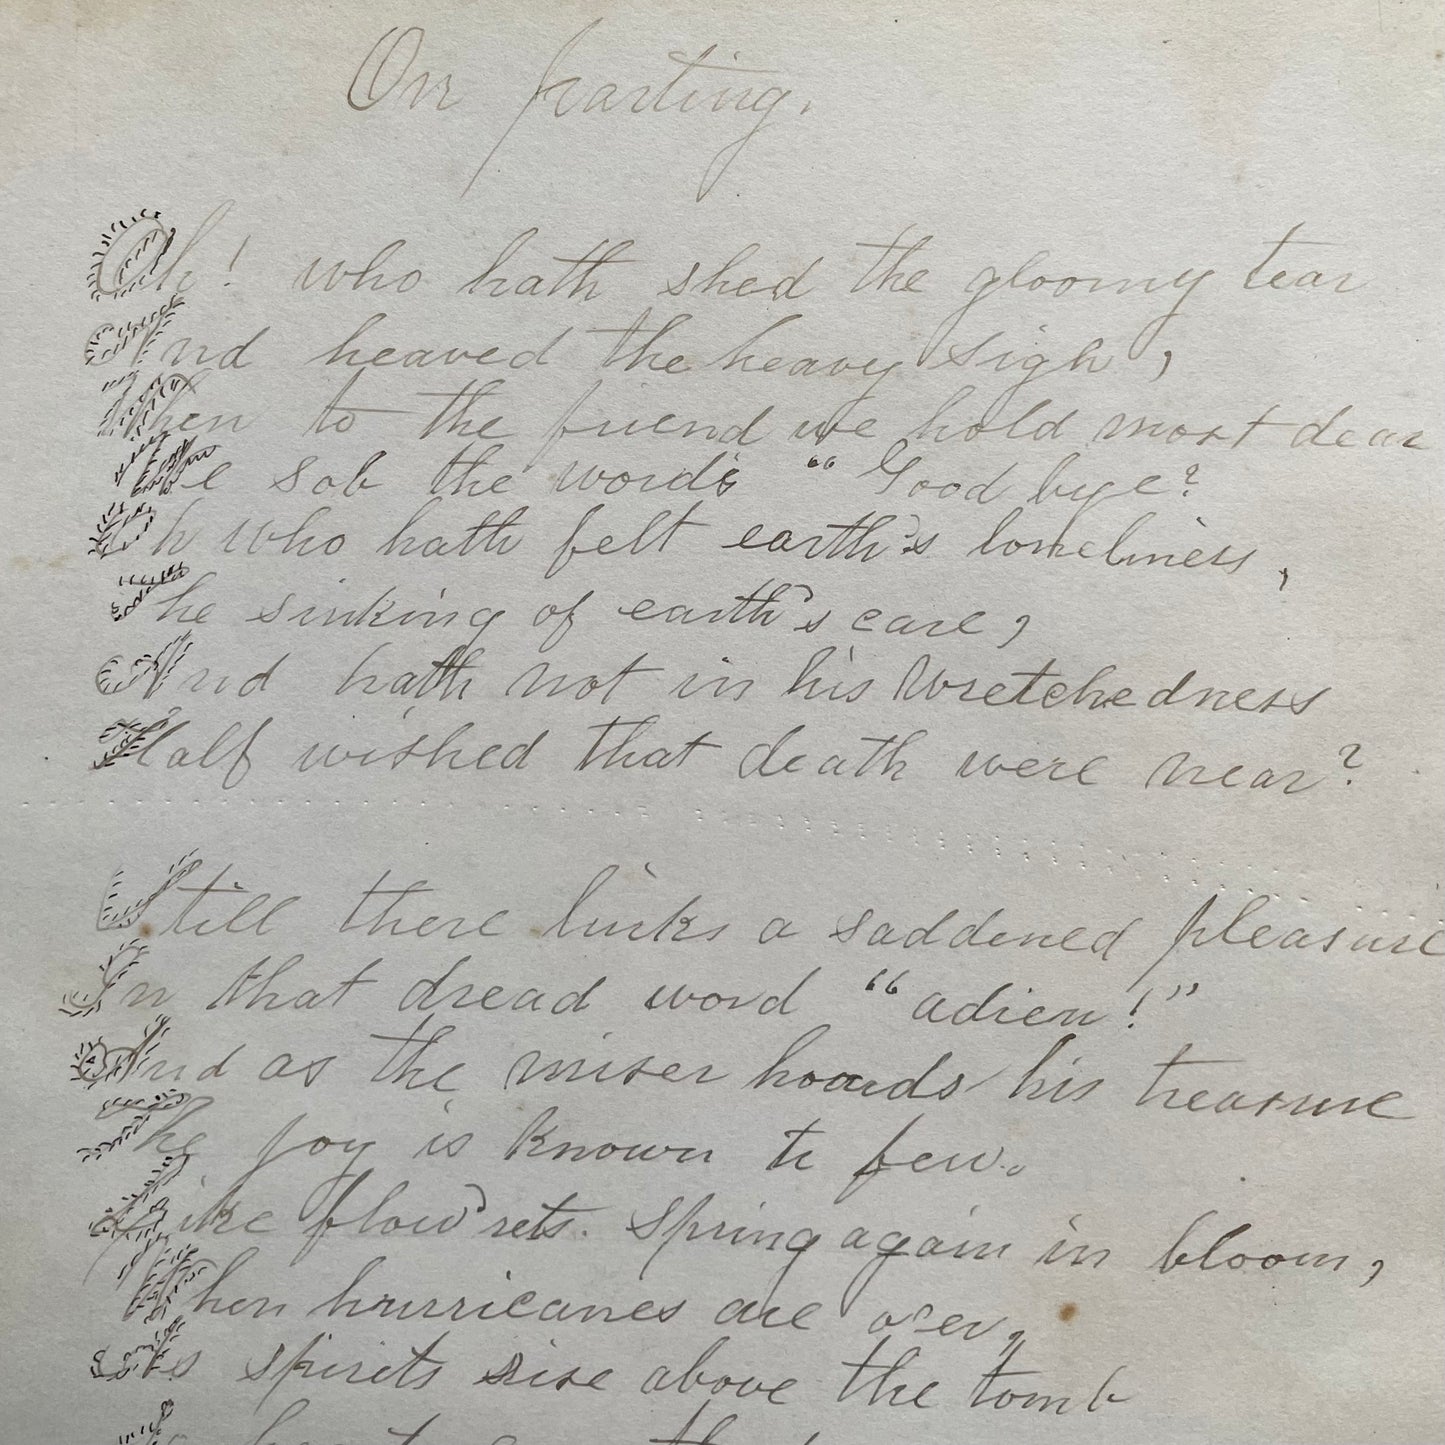 On parting.
Oh! who hath shed the gloomy tear
And heaved the heavy sigh,
When to the friend we hold most dear
We sob the words “Good bye?
Oh who hath felt earth's loneliness,
The sinking of earth's care,
And hath not in his wretchedness
Half wished that death were near?
Still there links a saddened pleasure
In that dread word “adieu!”
And as the miser hoards his treasure
The joy is known to few.
Like flow'rets. Spring again in bloom,
When hurricanes are o'er,
As spirits rise above the tomb